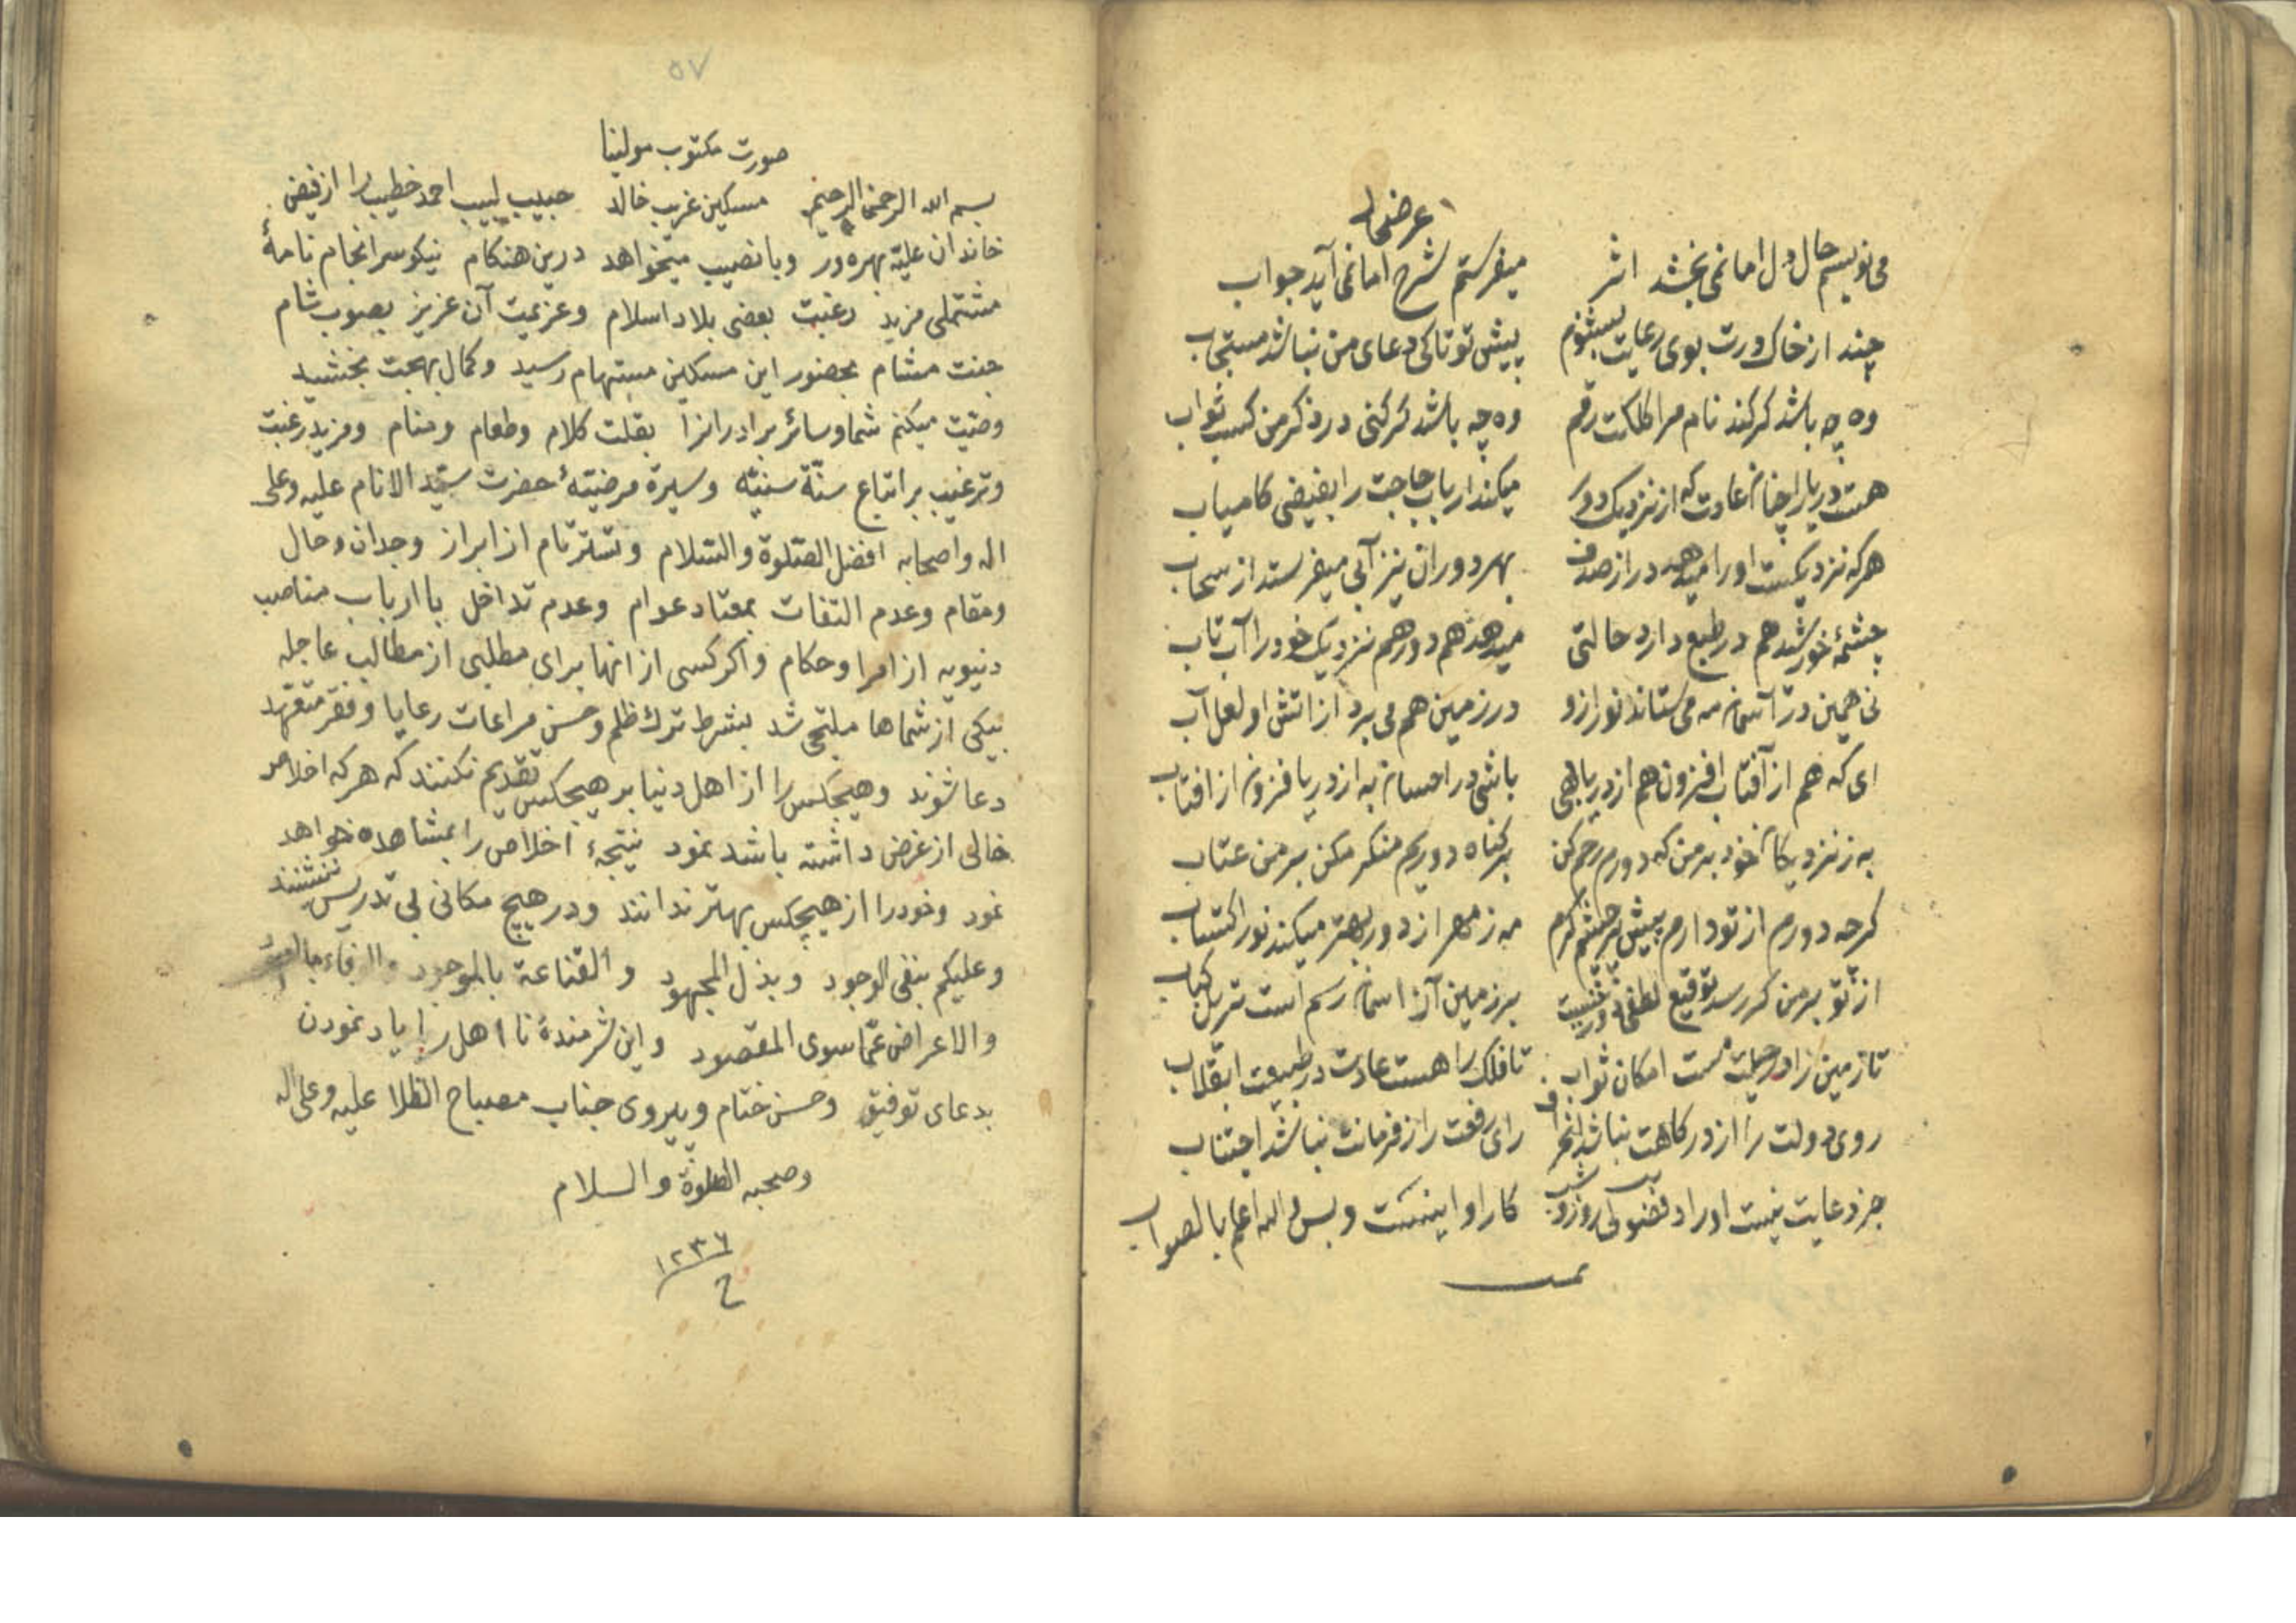 عرضحال
می نویسم حال دل اما نمی بخشد اثر میفرستم شرح اما نمی آید جواب
چند از خاک درت بوی رعایت بشنوم پیش تو تا کی دعای من نباشد مستجاب
وه چه باشد گر کند نام مرا کلکت رقم وه چه باشد گر کنی در ذکر من کسب ثواب
هست دریا را چنان عادت که از نزدیک و دور میکند ارباب حاجت را بفیضی کامیاب
هر که نزدیکست او را میدهد در از صدف بهر دوران نیز آبی میفرستد از سحاب
چشمهٔ خورشید هم در طبع دارد حالتی میدهد هم دور هم نزدیک خود را آب تاب
نی همین در آسمان مه می ستاند نور ازو در زمین هم می برد از اتش او لعل آب
ای که هم از آفتاب افزون هم از دریا بهی باشی در احسان به از دریا فزون از افتاب
به ز نزدیکان خود بر من که دورم رحم کن بر گناه دوریم منگر مکن بر من عتاب
گرچه دورم از تو دارم پیش چشم کرم مه ز مهر از دور بهتر میکند نور اکتساب
از تو بر من گر رسد توقیع لطفی دور نیست بر زمین آن اسمان رسم است تنزیل کتاب
تا زمین را در جبلت هست امکان ثواب تا فلک را هست عادت در طبیعت انقلاب
روی دولت را از درگاهت نباشد انحراف رای رفعت را ز فرمانت نباشد اجتناب
جز دعایت نیست اوراد فضولی روز و شب کار او اینست و بس والله اعلم بالصواب
تمت
٥٧
صورت مکتوب مولینا
بسم الله الرحمن الرحیم مسکین غریب خالد حبیب لبیب احمد خطیب را از فیض
خاندان علیّه بهره ور وبا نصیب میخواهد درین هنکام نیکو سرانجام نامهٔ
مشتملی مزید رغبت بعضی بلاد اسلام وعزیمت آن عزیز بصوب شام
جنت مشام بحضور این مسکین مستهام رسید وکمال بهجت بخشید
وصیّت میکنم شما وسائر برادرانرا بقلت کلام وطعام ومنام ومزید رغبت
وترغیب بر اتباع سنّة سنیّه وسیرة مرضیّهٔ حضرت سیّد الانام علیه وعلی
اله واصحابه افضل الصّلوة والسّلام وتستّر تام از ابراز وجدان وحال
ومقام وعدم التفات بمعتاد عوام وعدم تداخل با ارباب مناصب
دنیویه از امرا وحکام واکر کسی از انها برای مطلبی از مطالب عاجله
بیکی از شماها ملتجی شد بشرط ترك ظلم وحسن مراعات رعایا وفقر متعهد
دعا شوند وهیچکس را از اهل دنیا بر هیچکس تقدیم نکنند که هر که اخلاص
خالی از غرض داشته باشد نمود نتیجهٔ اخلاص را مشاهده خواهد
نمود وخود را از هیچکس بهتر ندانند ودر هیچ مکانی بی تدریس ننشنند
وعلیکم بنفی الوجود وبذل المجهود والقناعة بالموجود والوفاء بالعهود
والاعراض عمّا سوی المقصود واین شرمندهٔ نا اهل را یاد نمودن
بدعای توفیق وحسن ختام وپیروی جناب مصباح الظلا علیه وعلی اله
وصحبه الصلوة والسلام
١٢٣٦
ح